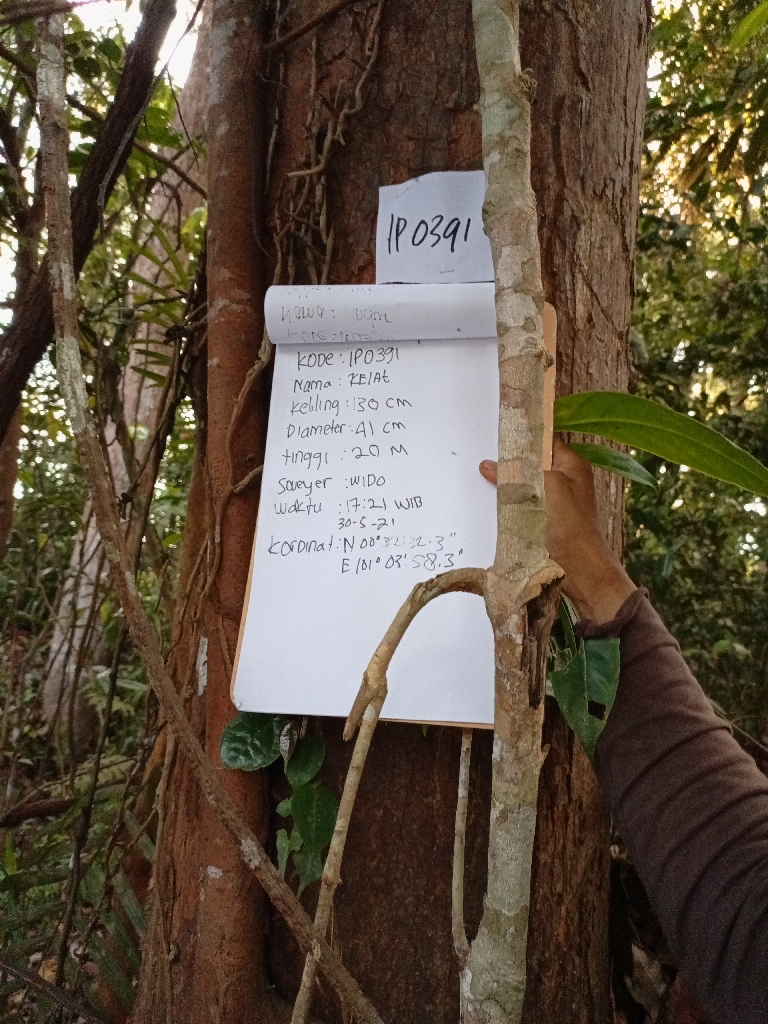 IP0391
Nama :
Kode : IP0391
Nama : KElAt
Keliling : 130 cm
Diameter : 41 cm
tinggi : 20 M
Soveyer : WIDO
waktu : 17:21 WIB
30-5-21
Kordinat : N 00° 32' 3"
E 101° 03' 58.3"